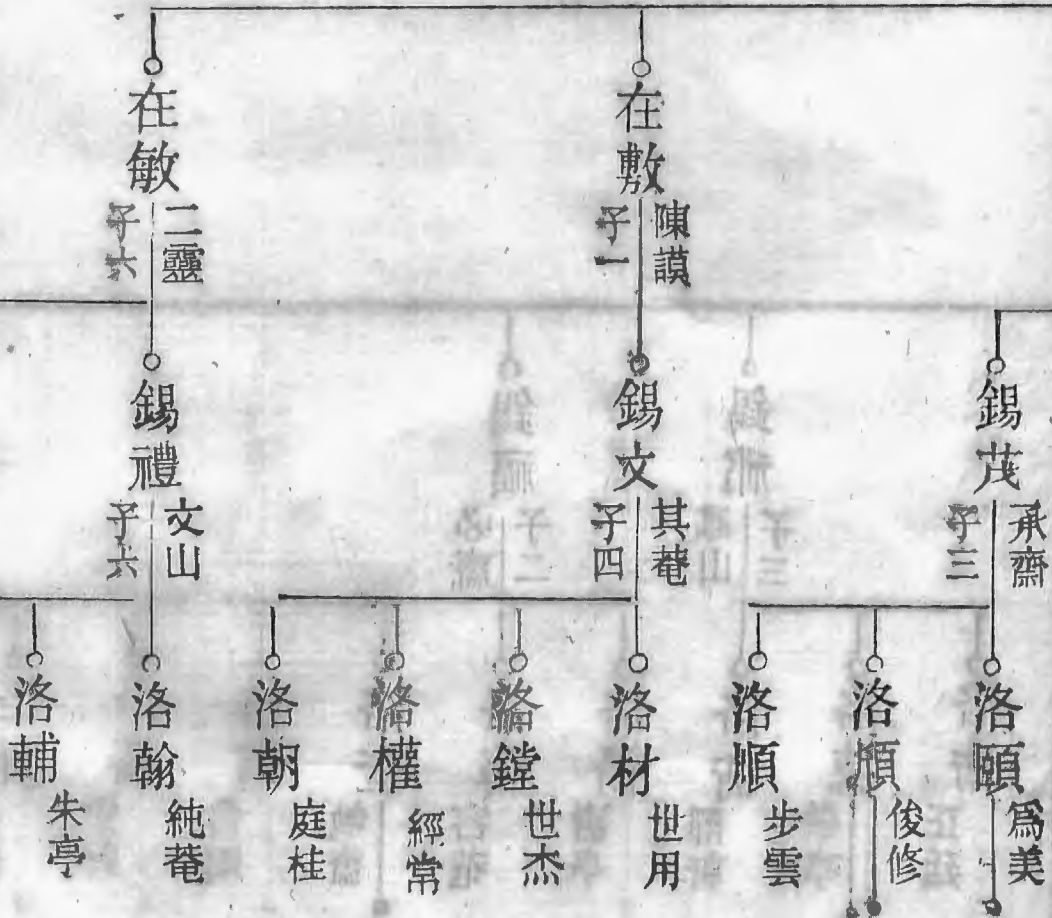 在敷
陳謨
子一
在敏
二靈
子六
錫茂
承齋
子三
錫文
其菴
子四
錫禮
文山
子六
洛頤
爲美
洛
俊修
洛順
步雲
洛材
世用
洛鏜
世杰
洛權
經常
洛朝
庭桂
洛翰
純菴
洛輔
朱亭